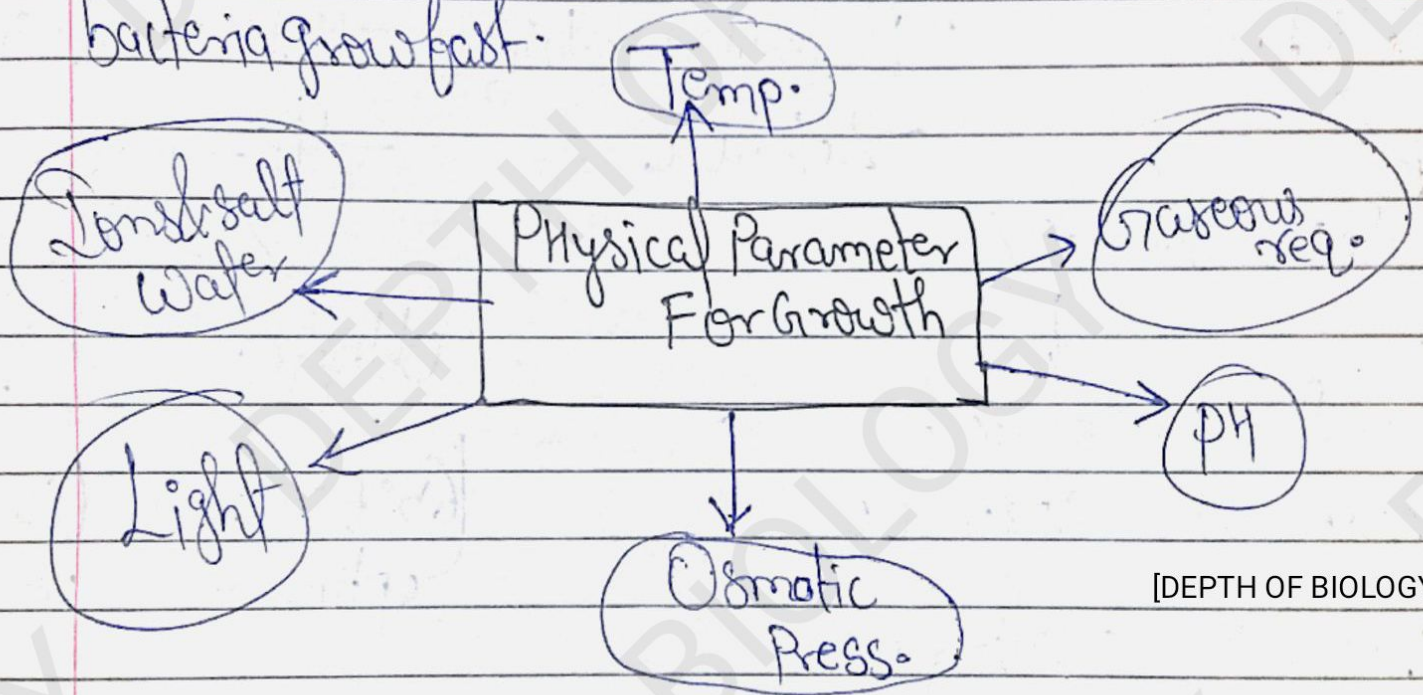 bacteria grow fast.
Temp.
Ions & salt
Water
PHysical Parameter
For Growth
Gaseous
req.
Light
PH
Osmotic
Press.
[DEPTH OF BIOLOGY
DEPTH OF BIOLOGY